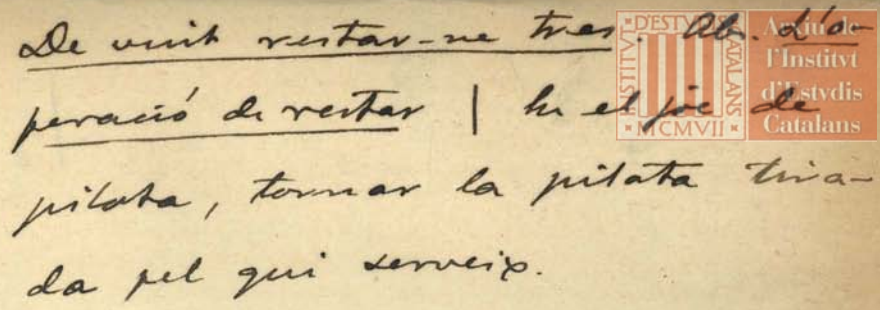 De vuit restar-ne tres. Ab. d'o-
peració de restar | En el joc de
pilota, tornar la pilota tira-
da pel qui serveix.
INSTITVT D'ESTVDIS CATALANS
MCMVII
Arxiu de
l'Institvt
d'Estvdis
Catalans